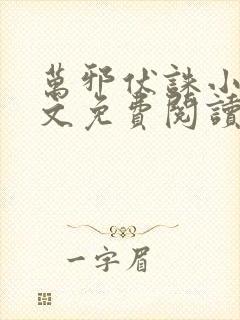 萬邪伏誅小
文免費閱讀
一字眉